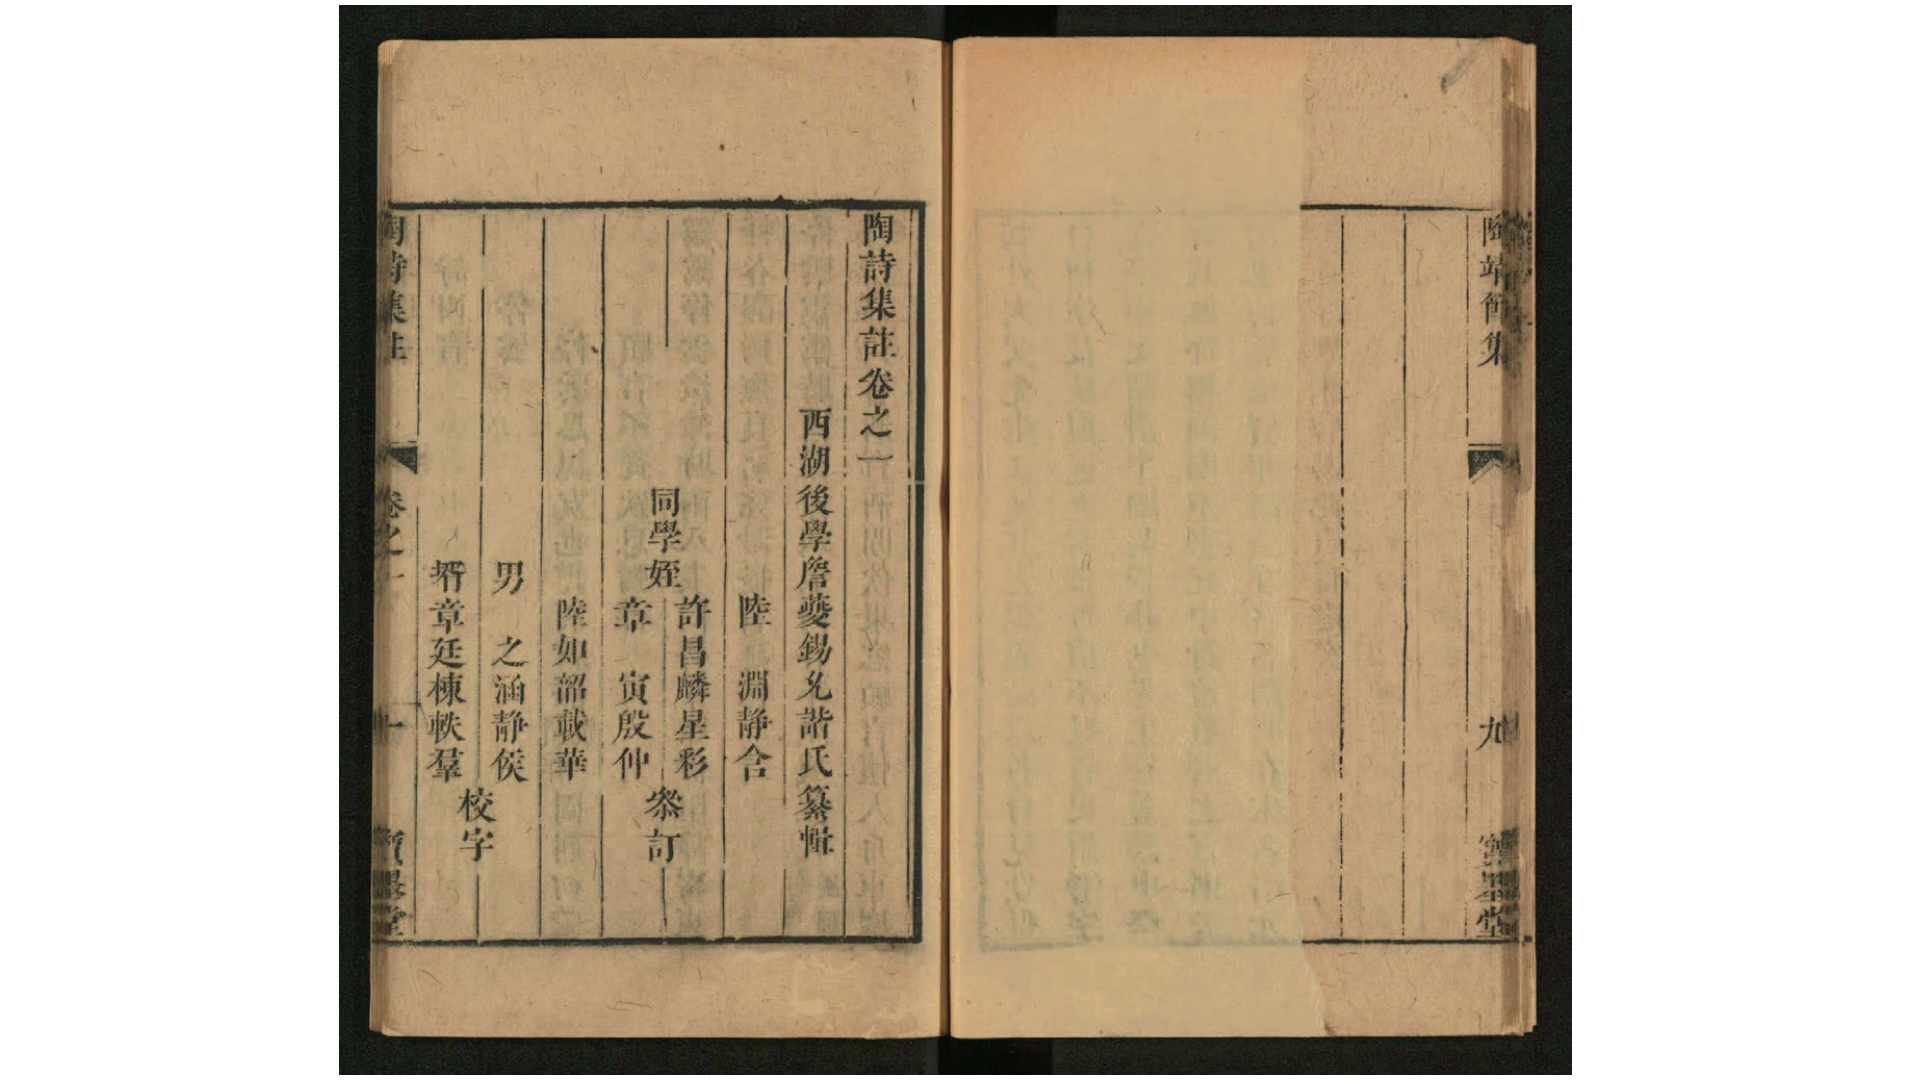 陶靖節集
九
寶墨堂
陶詩集註卷之一
西湖後學詹夔錫允諧氏纂輯
陸　淵靜含
同學姪
許昌麟星彩
章　寅殷仲
陸如韶載華
叅訂
男　之涵靜侯
壻章廷棟軼羣
校字
陶詩集註
卷之一
一
寶墨堂